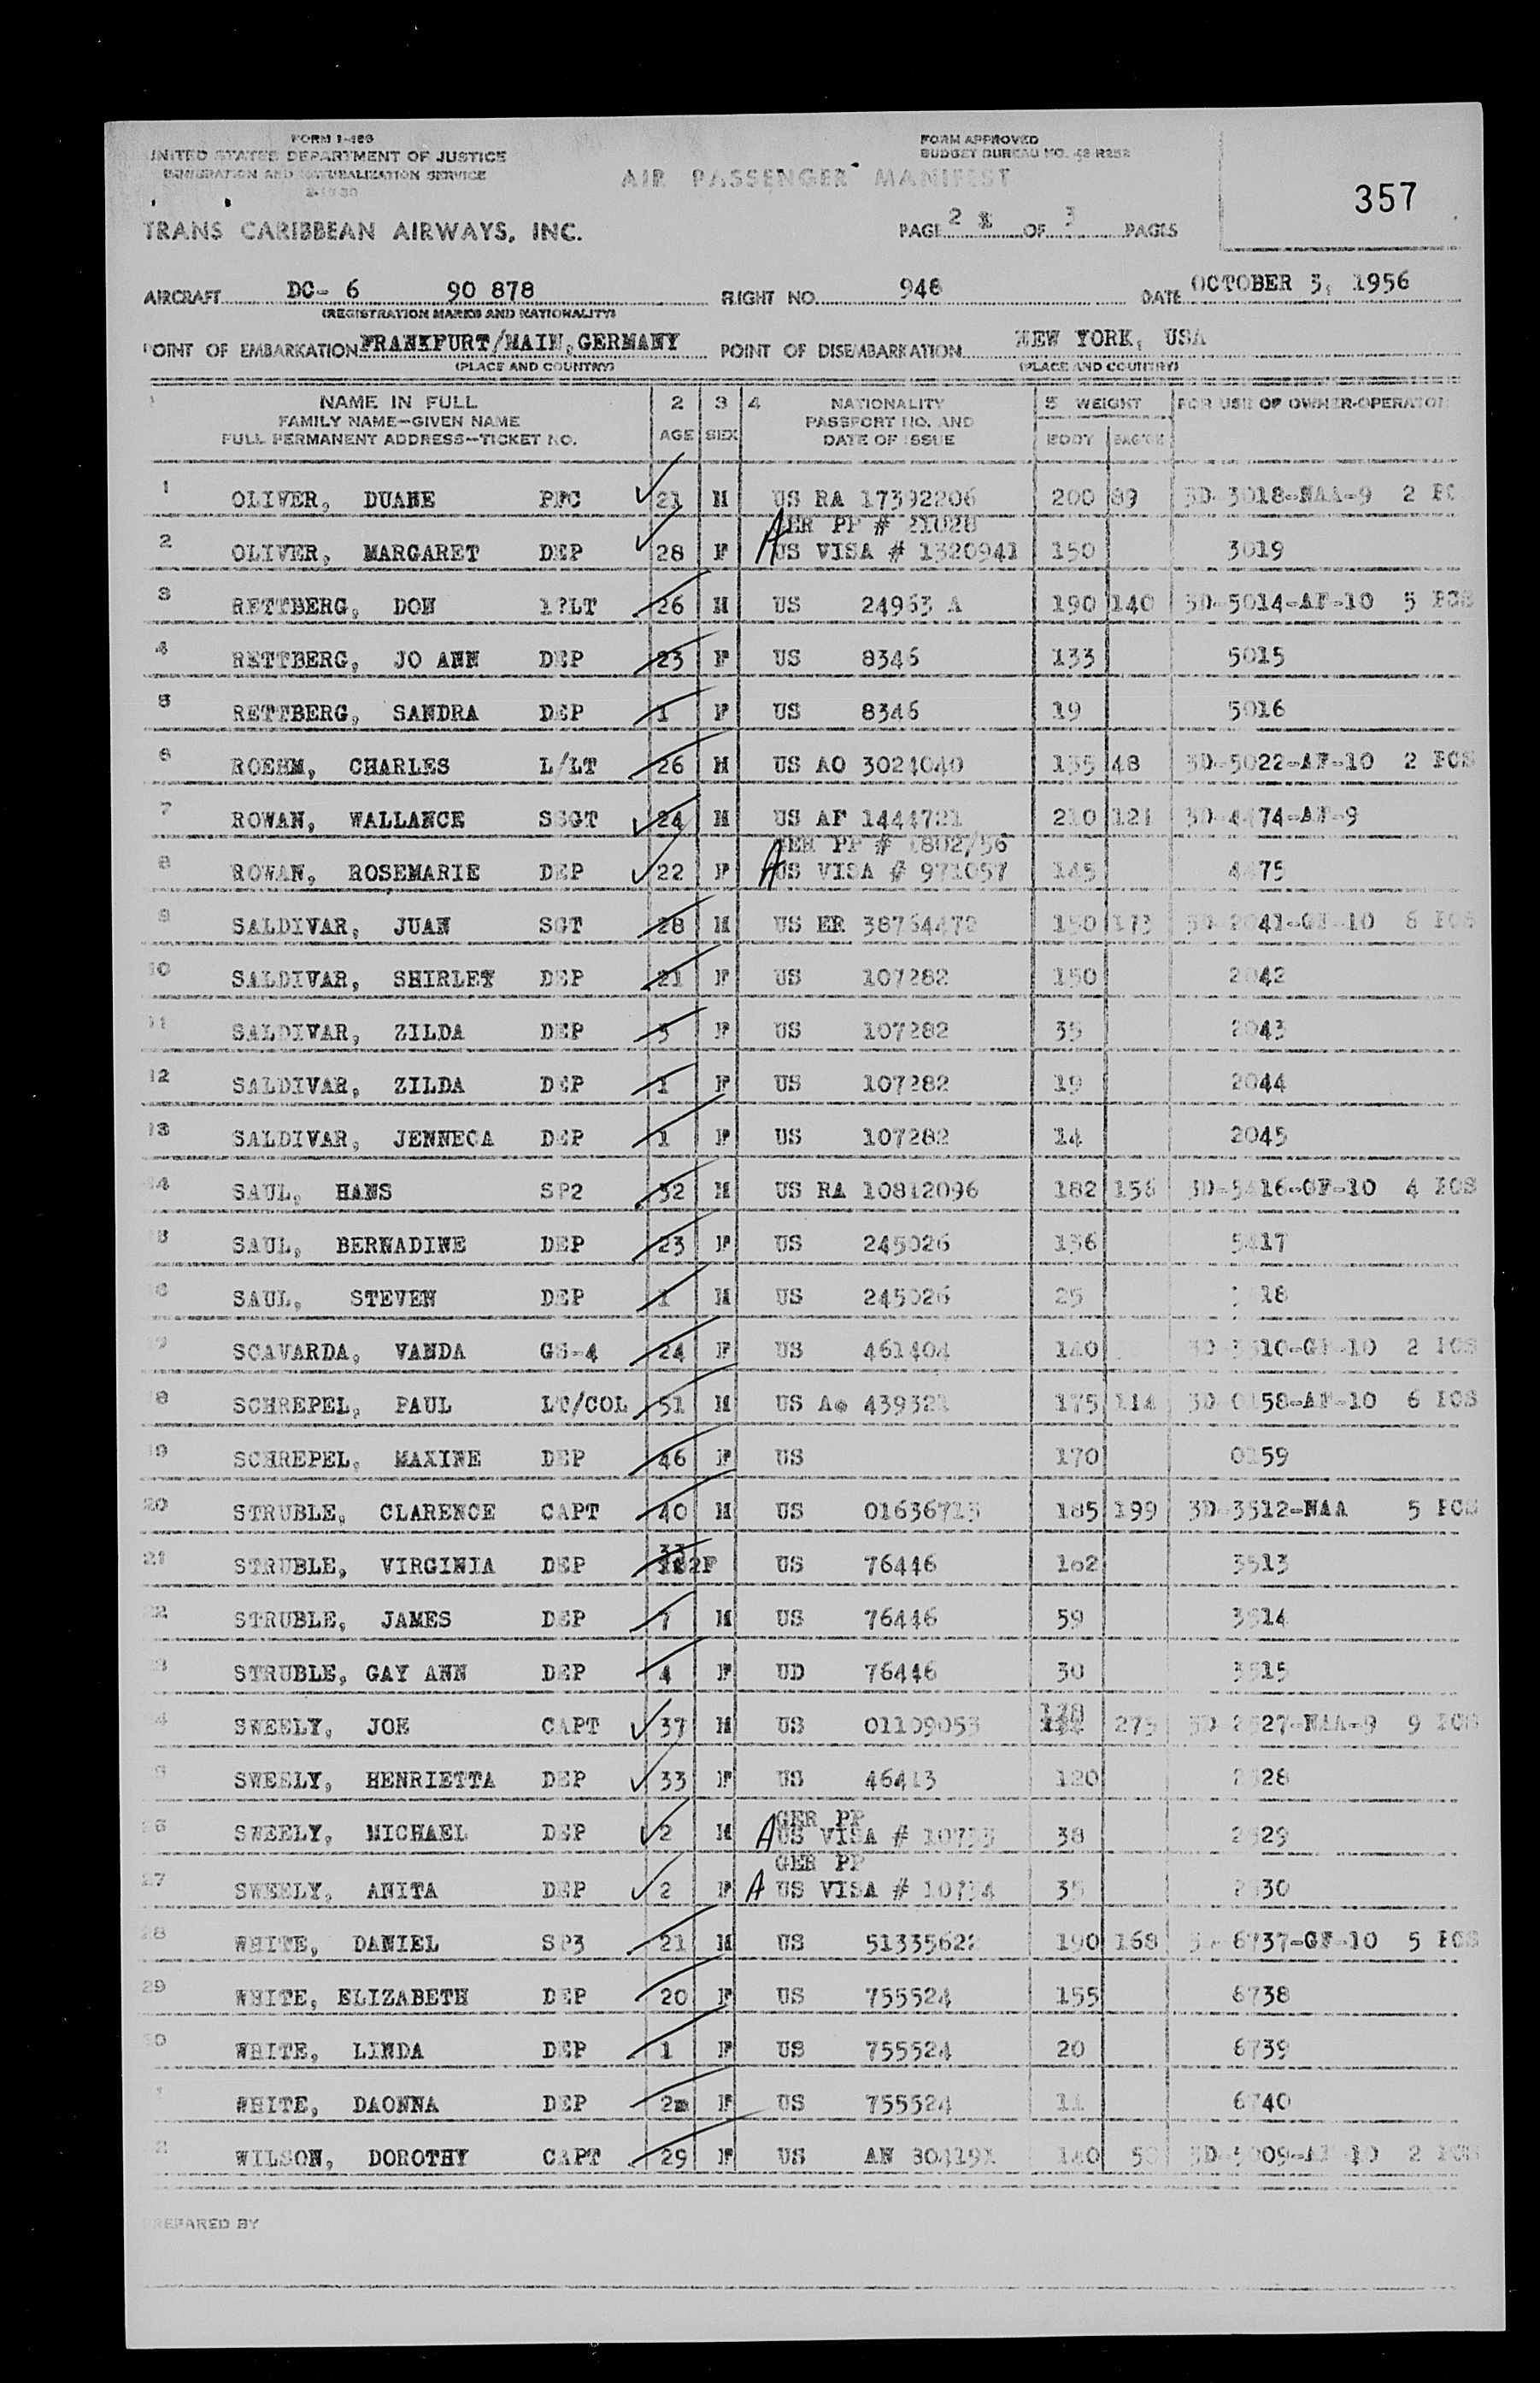 FORM I-466
UNITED STATES DEPARTMENT OF JUSTICE
IMMIGRATION AND NATURALIZATION SERVICE
FORM APPROVED
BUDGET BUREAU NO. 43-R252
AIR PASSENGER MANIFEST
357
TRANS CARIBBEAN AIRWAYS, INC.
PAGE 2 OF 3 PAGES
AIRCRAFT DC- 6 90 878 FLIGHT NO. 948 DATE OCTOBER 3, 1956
(REGISTRATION MARKS AND NATIONALITY)
POINT OF EMBARKATION FRANKFURT/MAIN, GERMANY POINT OF DISEMBARKATION NEW YORK, USA
(PLACE AND COUNTRY) (PLACE AND COUNTRY)
NAME IN FULL 2 3 4 NATIONALITY 5 WEIGHT FOR USE OF OWNER-OPERATOR
FAMILY NAME-GIVEN NAME PASSPORT NO. AND
FULL PERMANENT ADDRESS-TICKET NO. AGE SEX DATE OF ISSUE BODY BAG'GE
1 OLIVER, DUANE PFC 21 M US RA 17392206 200 89 3D-3018-NAA-9 2 PC
GER PP # 21028
2 OLIVER, MARGARET DEP 28 F A US VISA # 1320941 150 3019
3 RETTBERG, DON 1?LT 26 M US 24963 A 190 140 3D-5014-AF-10 5 PCS
4 RETTBERG, JO ANN DEP 23 F US 8346 133 5015
5 RETTBERG, SANDRA DEP 1 F US 8346 19 5016
6 ROEHM, CHARLES L/LT 26 M US AO 3024040 135 48 3D-5022-AF-10 2 PCS
7 ROWAN, WALLANCE SSGT 24 M US AF 1444721 210 121 3D-4474-AF-9
GER PP # 1802/56
8 ROWAN, ROSEMARIE DEP 22 F A US VISA # 971057 145 4475
9 SALDIVAR, JUAN SGT 28 M US ER 38764472 150 173 3D-2041-GF-10 6 PCS
10 SALDIVAR, SHIRLEY DEP 21 F US 107282 150 2042
11 SALDIVAR, ZILDA DEP 3 F US 107282 35 2043
12 SALDIVAR, ZILDA DEP 1 F US 107282 19 2044
13 SALDIVAR, JENNECA DEP 1 F US 107282 14 2045
14 SAUL, HANS SP2 32 M US RA 10812096 182 156 3D-5416-GF-10 4 PCS
15 SAUL, BERNADINE DEP 23 F US 245026 136 5417
16 SAUL, STEVEN DEP 1 M US 245026 25 18
SCAVARDA, VANDA GS-4 24 F US 461404 140 3D-3510-GF-10 2 PCS
18 SCHREPEL, PAUL LT/COL 51 M US AO 439321 175 114 3D-0158-AF-10 6 PCS
19 SCHREPEL, MAXINE DEP 46 F US 170 0159
20 STRUBLE, CLARENCE CAPT 40 M US 01636713 185 199 3D-3512-NAA 5 PCS
21 STRUBLE, VIRGINIA DEP 33 F US 76446 162 3513
22 STRUBLE, JAMES DEP 7 M US 76446 59 3514
23 STRUBLE, GAY ANN DEP 4 F UD 76446 30 3515
24 SWEELY, JOE CAPT 37 M US 01109053 275 3D-2527-NAA-9 9 PCS
SWEELY, HENRIETTA DEP 33 F US 46413 120 2528
GER PP
26 SWEELY, MICHAEL DEP 2 M A US VISA # 10733 38 2529
GER PP
27 SWEELY, ANITA DEP 2 F A US VISA # 10734 35 2530
28 WHITE, DANIEL SP3 21 M US 51335622 190 168 6737-GF-10 5 PCS
29 WHITE, ELIZABETH DEP 20 F US 755524 155 6738
30 WHITE, LINDA DEP 1 F US 755524 20 6739
WHITE, DAONNA DEP 2m F US 755524 11 6740
WILSON, DOROTHY CAPT 29 F US AN 140 3D-5009-AF-10 2 PCS
PREPARED BY